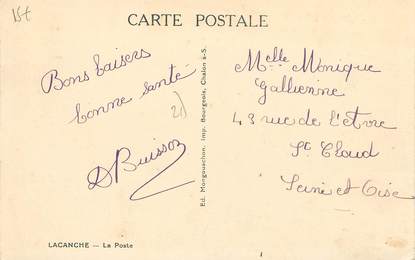 15t
CARTE POSTALE
Bons baisers
bonne santé
D Buisson
Ed. Mongouachon. Imp. Bourgeois, Chalon s-S.
Melle Monique
Gallienne
43 rue de l'etvre
St Cloud
Seine et Oise
LACANCHE — La Poste